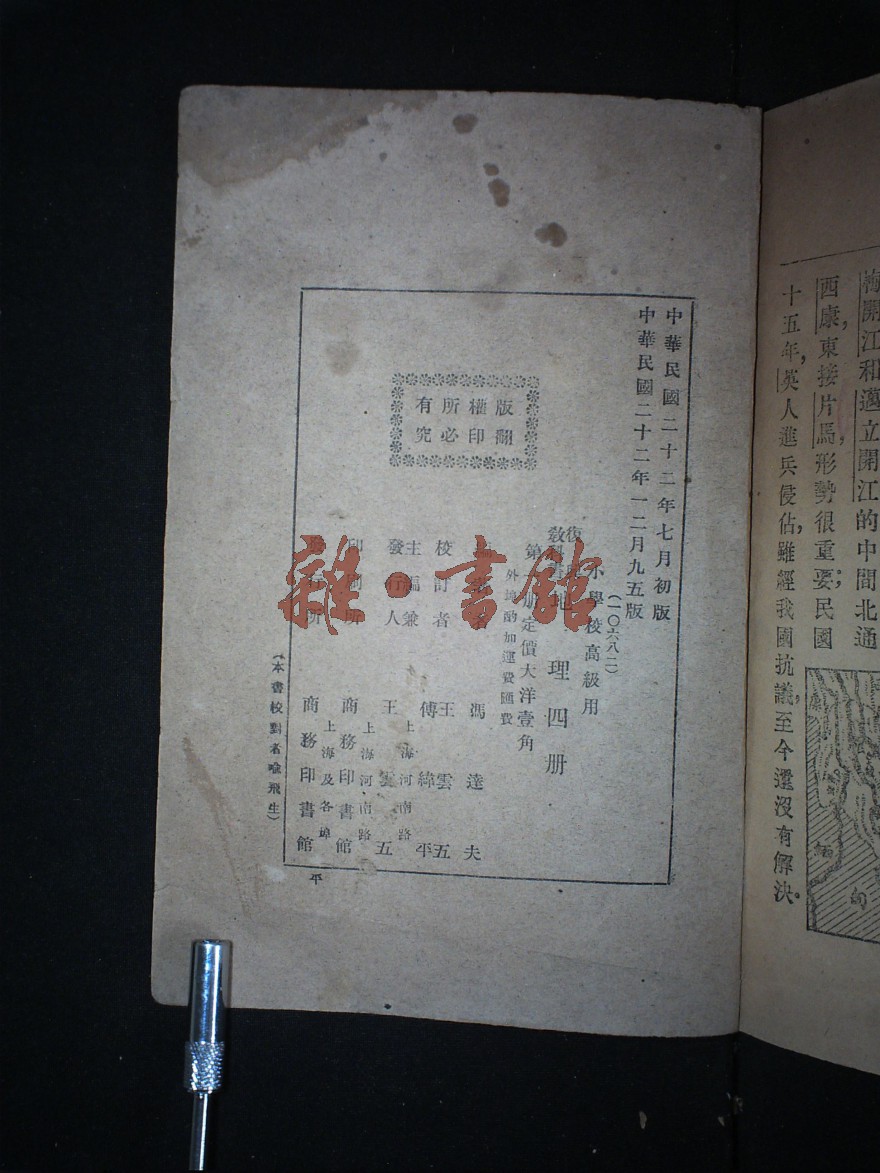 梅開江和邁立開江的中間北通
西康，東接片馬，形勢很重要；民國
十五年，英人進兵侵佔，雖經我國抗議，至今還沒有解決。
中華民國二十二年七月初版
中華民國二十二年一二月九五版
(一〇六八二)
小學校高級用
復興教科書地理四册
第 册定價大洋壹角
外埠酌加運費匯費
版權所有
翻印必究
編著者 馮達夫
校訂者 王雲五 傅緯平
主編兼發行人 王雲五 上海河南路
印刷所 商務印書館 上海河南路
發行所 商務印書館 上海及各埠
(本書校對者喻飛生)
平
雜·書館